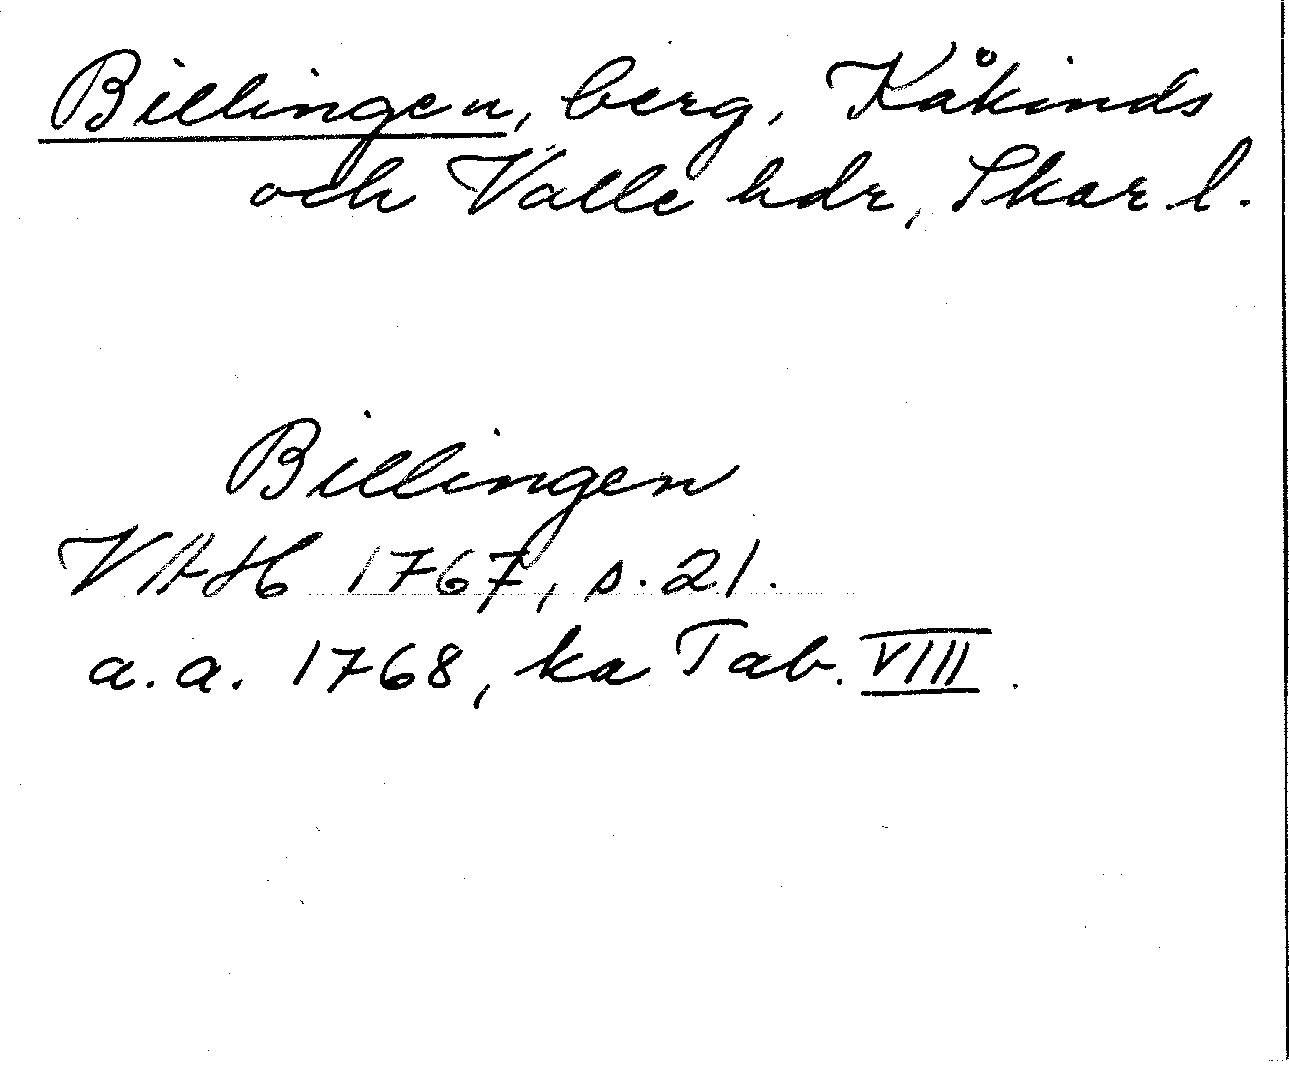 Billingen, berg, Kåkinds
och Valle hdr, Skar. l.
Billingen
VAH 1767, s. 21.
a. a. 1768, ka Tab. VIII.